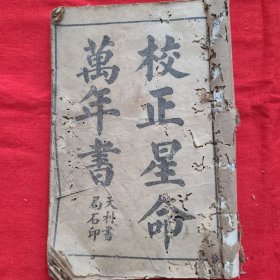 校正星命
萬年書
天科書
局石印